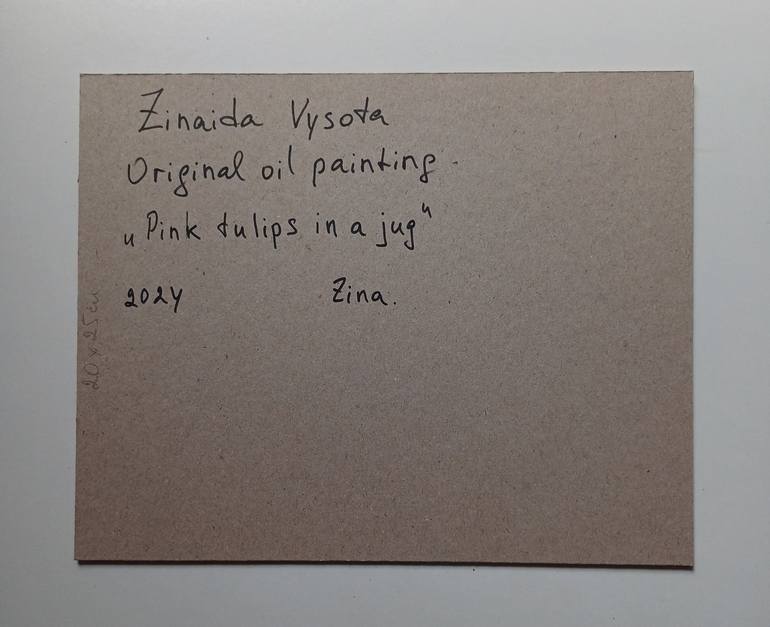 Zinaida Vysota
Original oil painting.
„Pink tulips in a jug"
2024 Zina.
20 x 25 см